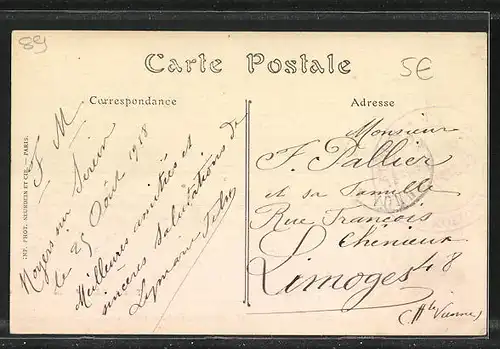 89
Carte Postale
5E
Correspondance
Adresse
F M
Noyers sur Serein
le 25 Août 1918
Meilleures amitiés et
sincères salutations de
IMP. PHOT. NEURDEIN ET CIE. — PARIS.
Monsieur
F. Pallier
et sa Famille
Rue François
Chénieux
Limoges 48
(Hte Vienne)